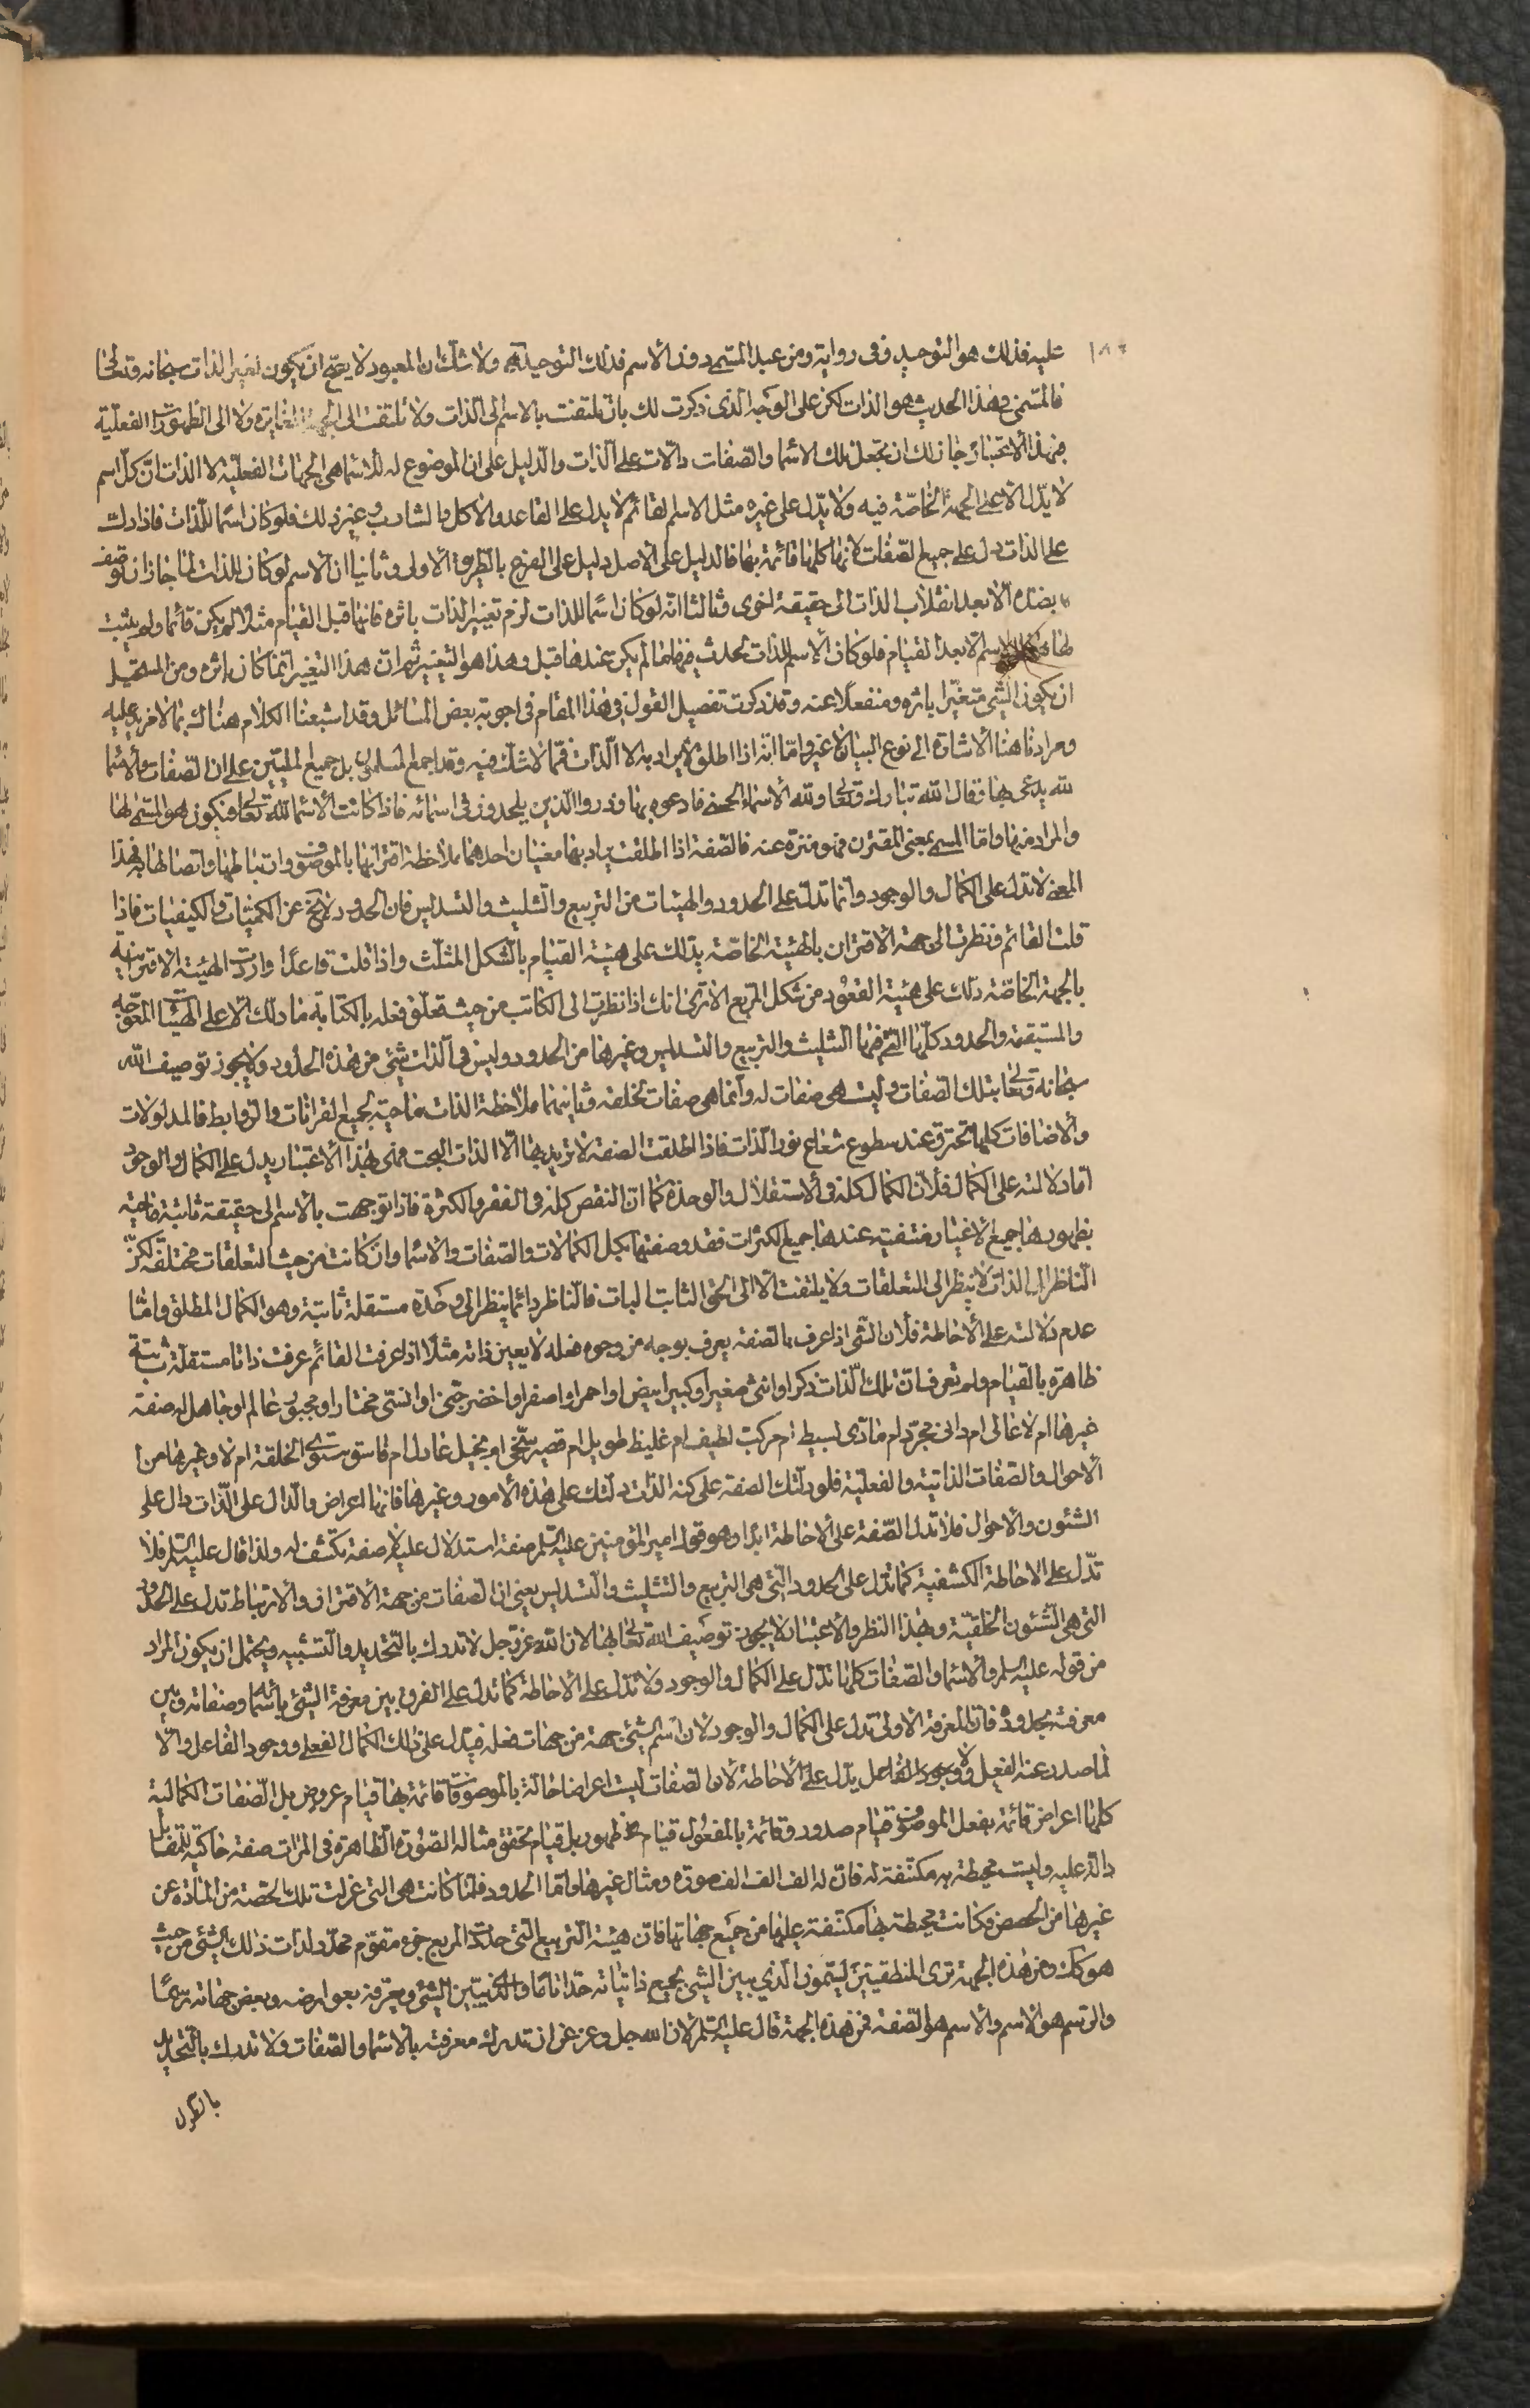 عليه فذلك هو التوحيد وفى رواية ومن عبد المسمى دون الأسم فذلك التوحيد آه ولا شك ان المعبود لا يصح ان يكون لغير الذات سبحانه وتعالى
فالمسمى فى هذا الحديث هو الذات لكن على الوجه الذى ذكرت لك بان تلتفت بالاسم الى الذات ولا تلتفت الى الجهة المغايرة ولا الى الظهورات الفعلية
فبهذا الأعتبار جاز لك ان تجعل تلك الاسما والصفات دالات على الذات والدليل على ان الموضوع له للاسما هى الجهات الفعلية لا الذات ان كل اسم
لا يدل الا على الجهة الخاصة فيه ولا يدل على غيره مثل الاسم القائم لا يدل على القاعد والاكل والشارب وغير ذلك فلو كان اسما للذات فاذا دلت
على الذات دل على جميع الصفات لانها كلها قائمة بها فالدليل على الاصل دليل على الفرع بالطريق الأولى وثانيا ان الأسم لو كان للذات لما جاز ان توصف
بضده الا بعد انقلاب الذات الى حقيقة اخرى وثالثا انه لو كان اسما للذات لزم تغيير الذات باثره فانها قبل القيام مثلا لم يكن قائما ولم يثبت
لها الاسم الا بعد القيام فلو كان الأسم للذات لحدث فيها ما لم يكن عندها قبل وهذا هو التغيير ثم ان هذا التغيير انما كان باثره ومن المستحيل
ان يكون الشئ متغيرا باثره ومنفعلا عنه وقد ذكرت تفصيل القول فى هذا المقام فى اجوبة بعض المسائل وقد اشبعنا الكلام هناك بما لا مزيد عليه
ومرادنا هنا الأشارة الى نوع البيان لا غير واما انه اذا اطلق لا يراد به الا الذات فمما لا شك فيه وقد اجمع المسلمون بل جميع المليين على ان الصفات والأسما
لله يدعى بها وقال الله تبارك وتعالى ولله الأسماء الحسنى فادعوه بها وذروا الذين يلحدون فى اسمائه فاذا كانت الأسما لله تعالى فيكون هو المسمى لها
والمراد منها واما المسمى بمعنى المقترن فهو منزه عنه فالصفة اذا اطلقت يراد بها معنيان احدهما ملاحظة اقترانها بالموصوف وارتباطها واتصالها به فهذا
المعنى لا تدل على الكمال والوجود وانما تدل على الحدود والهيئات من التربيع والتثليث والتسديس فان الحدود لا تخ عن الكميات والكيفيات فاذا
قلت القائم ونظرت الى جهة الاقتران بالهيئة الخاصة يدلك على هيئة القيام بالشكل المثلث واذا قلت قاعدا واردت الهيئة الاقترانية
بالجهة الخاصة دلك على هيئة القعود من شكل المربع الا ترى انك اذا نظرت الى الكاتب من حيث تعلق فعله بالكتابة ما دلك الا على الهيئات المعوجة
والمستقيمة والحدود كلها التى فيها التثليث والتربيع والتسديس وغيرها من الحدود وليس فى الذات شئ من هذه الحدود ولا يجوز توصيف الله
سبحانه وتعالى بتلك الصفات وليست هى صفات له وانما هى صفات لخلقه وثانيهما ملاحظة الذات ماحية لجميع القرانات والروابط فالمدلولات
والاضافات كلها تحترق عند سطوع شعاع نور الذات فاذا اطلقت الصفة لا تريد بها الا الذات البحت فهى بهذا الأعتبار يدل على الكمال والوجود
اما دلالته على الكمال فلأن الكمال كله فى الأستقلال والوحدة كما ان النقص كله فى الفقر والكثرة فاذا توجهت بالأسم الى حقيقة ثابتة ماحية
بظهورها جميع الاغيار منتفية عندها جميع الكثرات فقد وصفتها بكل الكمالات والصفات والاسما وان كانت من حيث التعلقات مختلفة لكن
الناظر الى الذات لا ينظر الى التعلقات ولا يلتفت الا الى الحق الثابت البات فالناظر دائما ينظر الى وحدة مستقلة ثابتة وهو الكمال المطلق واما
عدم دلالته على الأحاطة فلان الشئ اذا عرف بالصفة يعرف بوجه من وجوه فعله لا بعين ذاته مثلا اذا عرفت القائم عرفت ذاتا مستقلة ثابتة
ظاهرة بالقيام ولم تعرف ان تلك الذات ذكر او انثى صغير او كبير ابيض او احمر او اصفر او اخضر جنى او انسى مختار او مجبور عالم او جاهل له صفة
غيرها ام لا عالى ام دانى مجرد ام مادى بسيط ام مركب لطيف ام غليظ طويل ام قصير سخى او بخيل عادل ام فاسق مستوى الخلقة ام لا وغيرها من
الأحوال والصفات الذاتية والفعلية فلو دلتك الصفة على كنه الذات دلتك على هذه الأمور وغيرها فانها اعراض والدال على الذات دال على
الشئون والأحوال فلا تدل الصفة على الأحاطة ابدا وهو قول امير المؤمنين عليه السلم صفة استدلال عليه لا صفة تكشف له ولذا قال عليه السلم فلا
تدل على الاحاطة الكشفية كما تدل على الحدود التى هى التربيع والتثليث والتسديس يعنى ان الصفات من جهة الأقتران والأرتباط تدل على الحدود
التى هى الشئون الخلقية وبهذا النظر والأعتبار لا يجوز توصيف الله تعالى بها لان الله عز وجل لا تدرك بالتحديد والتشبيه ويحتمل ان يكون المراد
من قوله عليه السلم والأسما والصفات كلها تدل على الكمال والوجود ولا تدل على الأحاطة كما تدل على الفرق بين معرفة الشئ باسما وصفاته وبين
معرفته بحدوده فان المعرفة الاولى تدل على الكمال والوجود لان اسم الشئ جهة من جهات فعله فيدل على ذلك الكمال الفعلى ووجود الفاعل والا
لما صدر عنه الفعل ولا وجود الفاعل يدل على الأحاطة لأن الصفات ليست اعراضا حالة بالموصوف قائمة بها قيام عروض بل الصفات الكمالية
كلها اعراض قائمة بفعل الموصوف قيام صدور وقائمة بالمفعول قيام ظهور بل قيام تحقق مثاله الصورة الظاهرة فى المرات صفة حاكية للمقابل
دالة عليه وليست محيطة به مكتنفة له فان له الف الف الف صورة ومثال غيرها واما الحدود فلما كانت هى التى عزلت تلك الحصة من المادة عن
غيرها من الحصص فكانت محيطة بها مكتنفة عليها من جميع جهاتها فان هيئة التربيع التى حدت المربع جزء مقوم محدد لذات ذلك الشئ من حيث
هو كك ومن هذه الجهة ترى المنطقيين يسمون الذى يبين الشئ بجميع ذاتياته حدا تاما والذى يبين الشئ ويعرفه بعوارضه وبعض جهاته رسما
والرسم هو الأسم والأسم هو الصفة فمن هذه الجهة قال عليه السلم لان الله جل وعز عن ان تدرك معرفته بالاسما والصفات ولا تدرك بالتحديد